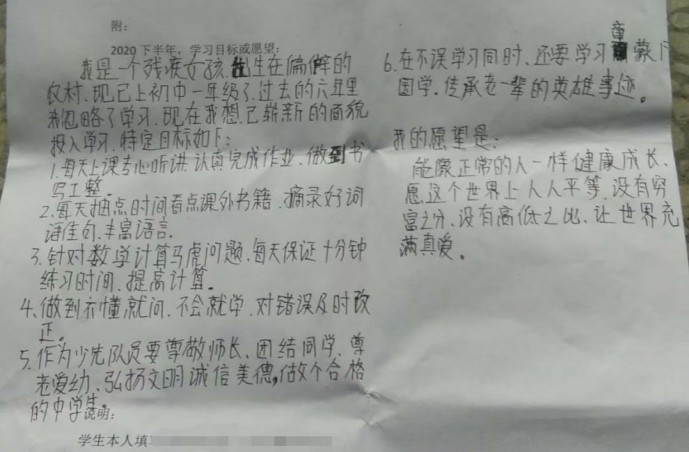 附:
2020 下半年，学习目标或愿望:
我是一个残疾女孩.出生在偏僻的
农村.现已上初中一年级了.过去的六年里
我忽略了学习.现在我想.已崭新的面貌
投入学习.特定目标如下:
1.每天上课专心听讲.认真完成作业.做到书
写工整.
2.每天抽点时间看点课外书籍.摘录好词
语佳句.丰富语言.
3.针对数学计算马虎问题.每天保证十分钟
练习时间.提高计算.
4.做到不懂就问.不会就学.对错误及时改
正。
5.作为少先队员要尊敬师长.团结同学.尊
老爱幼.弘扬文明诚信美德,做个合格
的中学生。
说明:
学生本人填
6.在不误学习同时.还要学习
国学.传承老一辈的英雄事迹.
我的愿望是:
能像正常的人一样健康成长.
愿这个世界上人人平等.没有穷
富之分.没有高低之比.让世界充
满真爱。